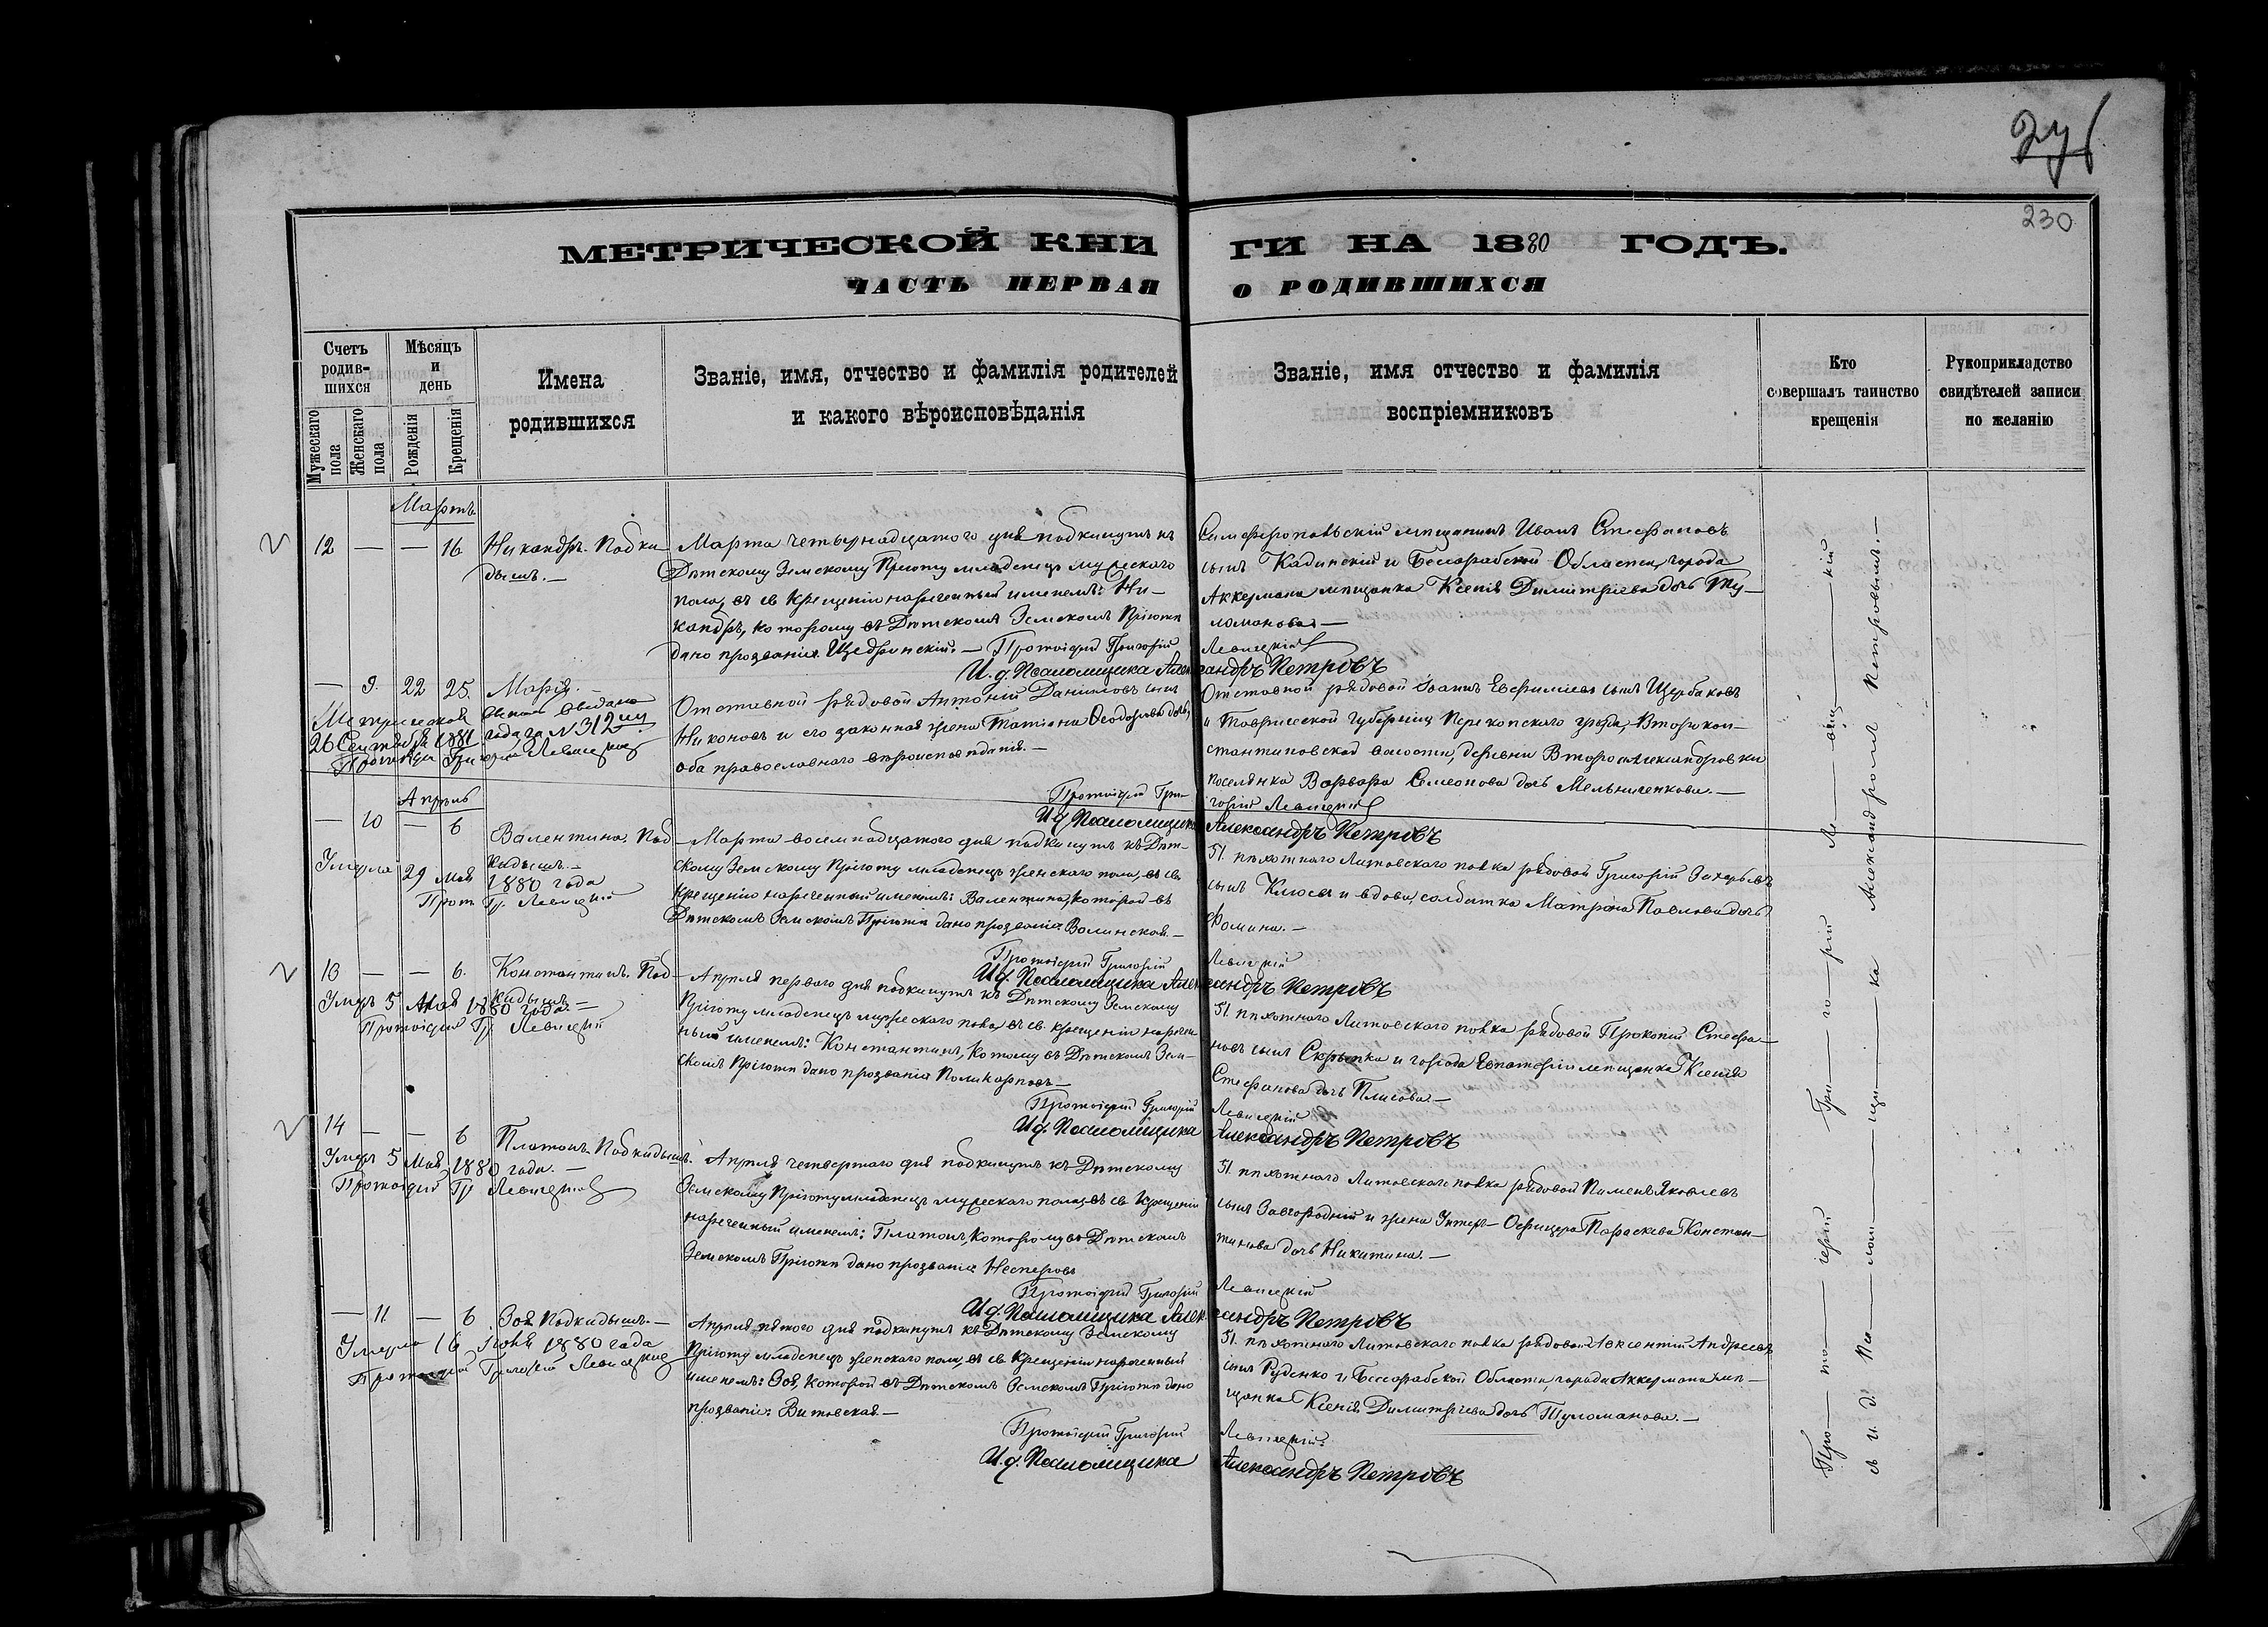 230
МЕТРИЧЕСКОЙ КНИГИ НА 1880 ГОДЪ.
ЧАСТЬ ПЕРВАЯ О РОДИВШИХСЯ
Счетъ родив-шихся
Мужескаго пола
Женскаго пола
Мѣсяцъ и день
Рожденія
Крещенія
Имена родившихся
Званіе, имя, отчество и фамилія родителей и какого вѣроисповѣданія
Званіе, имя отчество и фамилія воспріемниковъ
Кто совершалъ таинство крещенія
Рукоприкладство свидѣтелей записи по желанію
Мартъ
12 — — 16 Никандръ. Подки-
дышъ. —
Марта четырнадцатого дня подкинутъ къ
Дѣтскому Земскому Пріюту младенецъ мужескаго
пола, въ св. крещеніи нареченный именемъ: Ни-
кандръ, которому въ Дѣтскомъ Земскомъ Пріютѣ
дано прозваніе Щедринскій. — Протоіерей Григорій
И. д. Псаломщика Алек
Симферопольскій мѣщанинъ Иванъ Стефановъ
сынъ Кадинскій и Бессарабской Области, города
Аккермана мѣщанка Ксенія Димитріева дочь Ту-
ломанова. —
Левицкій
сандръ Петровъ
— 9. 22 25. Марія.
Метрическое
26 Сентября 1881 года за № 312
Протоіерей Григорій Левицкій
Отставной рядовой Антоній Даниловъ сынъ
Никоновъ и его законная жена Татіана Ѳеодорова дочь,
оба православнаго вѣроисповѣданія. —
Протоіерей Гри-
И. д. Псаломщика
Отставной рядовой Іоаннъ Евфиміевъ сынъ Щербаковъ
и Таврической Губерніи Перекопскаго уѣзда, Второкон-
стантиновской волости, деревни Второалександровки
поселянка Варвара Симеонова дочь Мельниченкова. —
горій Левицкій
Александръ Петровъ
Апрѣль
— 10 — 6 Валентина. Под-
кидышъ. —
Умерла 29 Мая 1880 года
Прот. Гр. Левицкій
Марта восемнадцатого дня подкинутъ къ Дѣт-
скому Земскому Пріюту младенецъ женскаго пола, въ св.
крещеніи нареченный именемъ: Валентина, которой въ
Дѣтскомъ Земскомъ Пріютѣ дано прозваніе Волинская. —
Протоіерей Григорій
И. д. Псаломщика Алек
51. пѣхотнаго Литовскаго полка рядовой Григорій Захарьевъ
сынъ Клюевъ и вдова, солдатка Матрона Павлова дочь
Фомина. —
Левицкій
сандръ Петровъ
13 — — 6. Константинъ. Под-
кидышъ. —
Умеръ 5 Мая 1880 года. —
Протоіерей Гр. Левицкій
Апрѣля перваго дня подкинутъ къ Дѣтскому Земскому
Пріюту младенецъ мужескаго пола, въ св. крещеніи наречен-
ный именемъ: Константинъ, котому въ Дѣтскомъ Зем-
скомъ Пріютѣ дано прозваніе Поликарповъ —
Протоіерей Григорій
И. д. Псаломщика
51. пѣхотнаго Литовскаго полка рядовой Прокопій Стефа-
новъ сынъ Скрыпка и города Евпаторіи мѣщанка Ксенія
Стефанова дочь Плисова. —
Левицкій
Александръ Петровъ
14 — — 6 Платонъ. Подкидышъ.
Умеръ 5 Мая 1880 года. —
Протоіерей Гр. Левицкій
Апрѣля четвертаго дня подкинутъ къ Дѣтскому
Земскому Пріюту младенецъ мужескаго пола, въ св. крещеніи
нареченный именемъ: Платонъ, которому въ Дѣтскомъ
Земскомъ Пріютѣ дано прозваніе Нестеровъ
Протоіерей Григорій
И. д. Псаломщика Алек
51. пѣхотнаго Литовскаго полка рядовой Пименъ Яковлевъ
сынъ Завгородній и жена Унтеръ-Офицера Параскева Констан-
тинова дочь Никитина. —
Левицкій
сандръ Петровъ
— 11 — 6 Зоя Подкидышъ. —
Умерла 16 Іюня 1880 года
Протоіерей Григорій Левицкій
Апрѣля пятого дня подкинутъ къ Дѣтскому Земскому
Пріюту младенецъ женскаго пола, въ св. крещеніи нареченный
именемъ: Зоя, которой въ Дѣтскомъ Земскомъ Пріютѣ дано
прозваніе: Витовская. —
Протоіерей Григорій
И. д. Псаломщика
51. пѣхотнаго Литовскаго полка рядовой Авксентій Андреевъ
сынъ Руденко и Бессарабской Области, города Аккермана мѣ-
щанка Ксенія Димитріева дочь Туломанова. —
Левицкій.
Александръ Петровъ
Про—то—іерей Гри—го—рій Ле—виц—кій
съ и. д. Пса—лом—щи—ка Александромъ Петровымъ. —